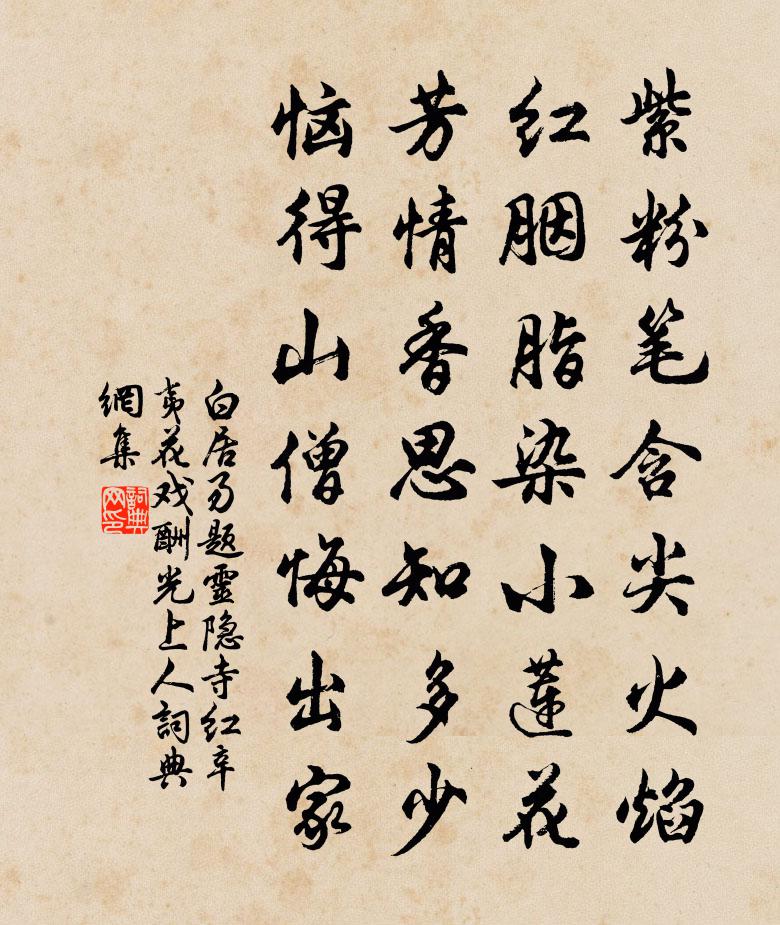 紫粉笔含尖火焰
红胭脂染小莲花
芳情香思知多少
恼得山僧悔出家
白居易题靈隐寺红辛
夷花戏酬光上人詞典
網集
詞典网印